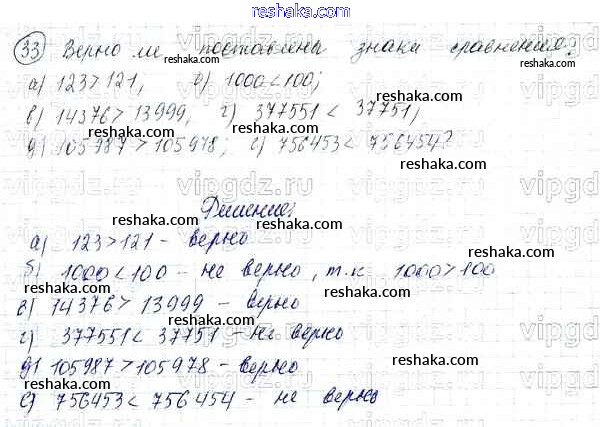 reshaka.com
33) Верно ли поставлена знаки сравнения?
reshaka.com reshaka.com
а) 123 > 121; б) 1000 < 100;
reshaka.com
в) 14376 > 13999, г) 377551 < 37751,
reshaka.com reshaka.com
д) 105987 > 105978; е) 756453 < 756454?
vipgdz.ru vipgdz.ru
reshaka.com
Решение:
reshaka.com reshaka.com
а) 123 > 121 - верно
reshaka.com
б) 1000 < 100 - не верно, т.к 1000 > 100
reshaka.com
в) 14376 > 13999 - верно
reshaka.com reshaka.com
г) 377551 < 37751 - не верно
reshaka.com
д) 105987 > 105978 - верно
reshaka.com reshaka.com
е) 756453 < 756454 - не верно
reshaka.com